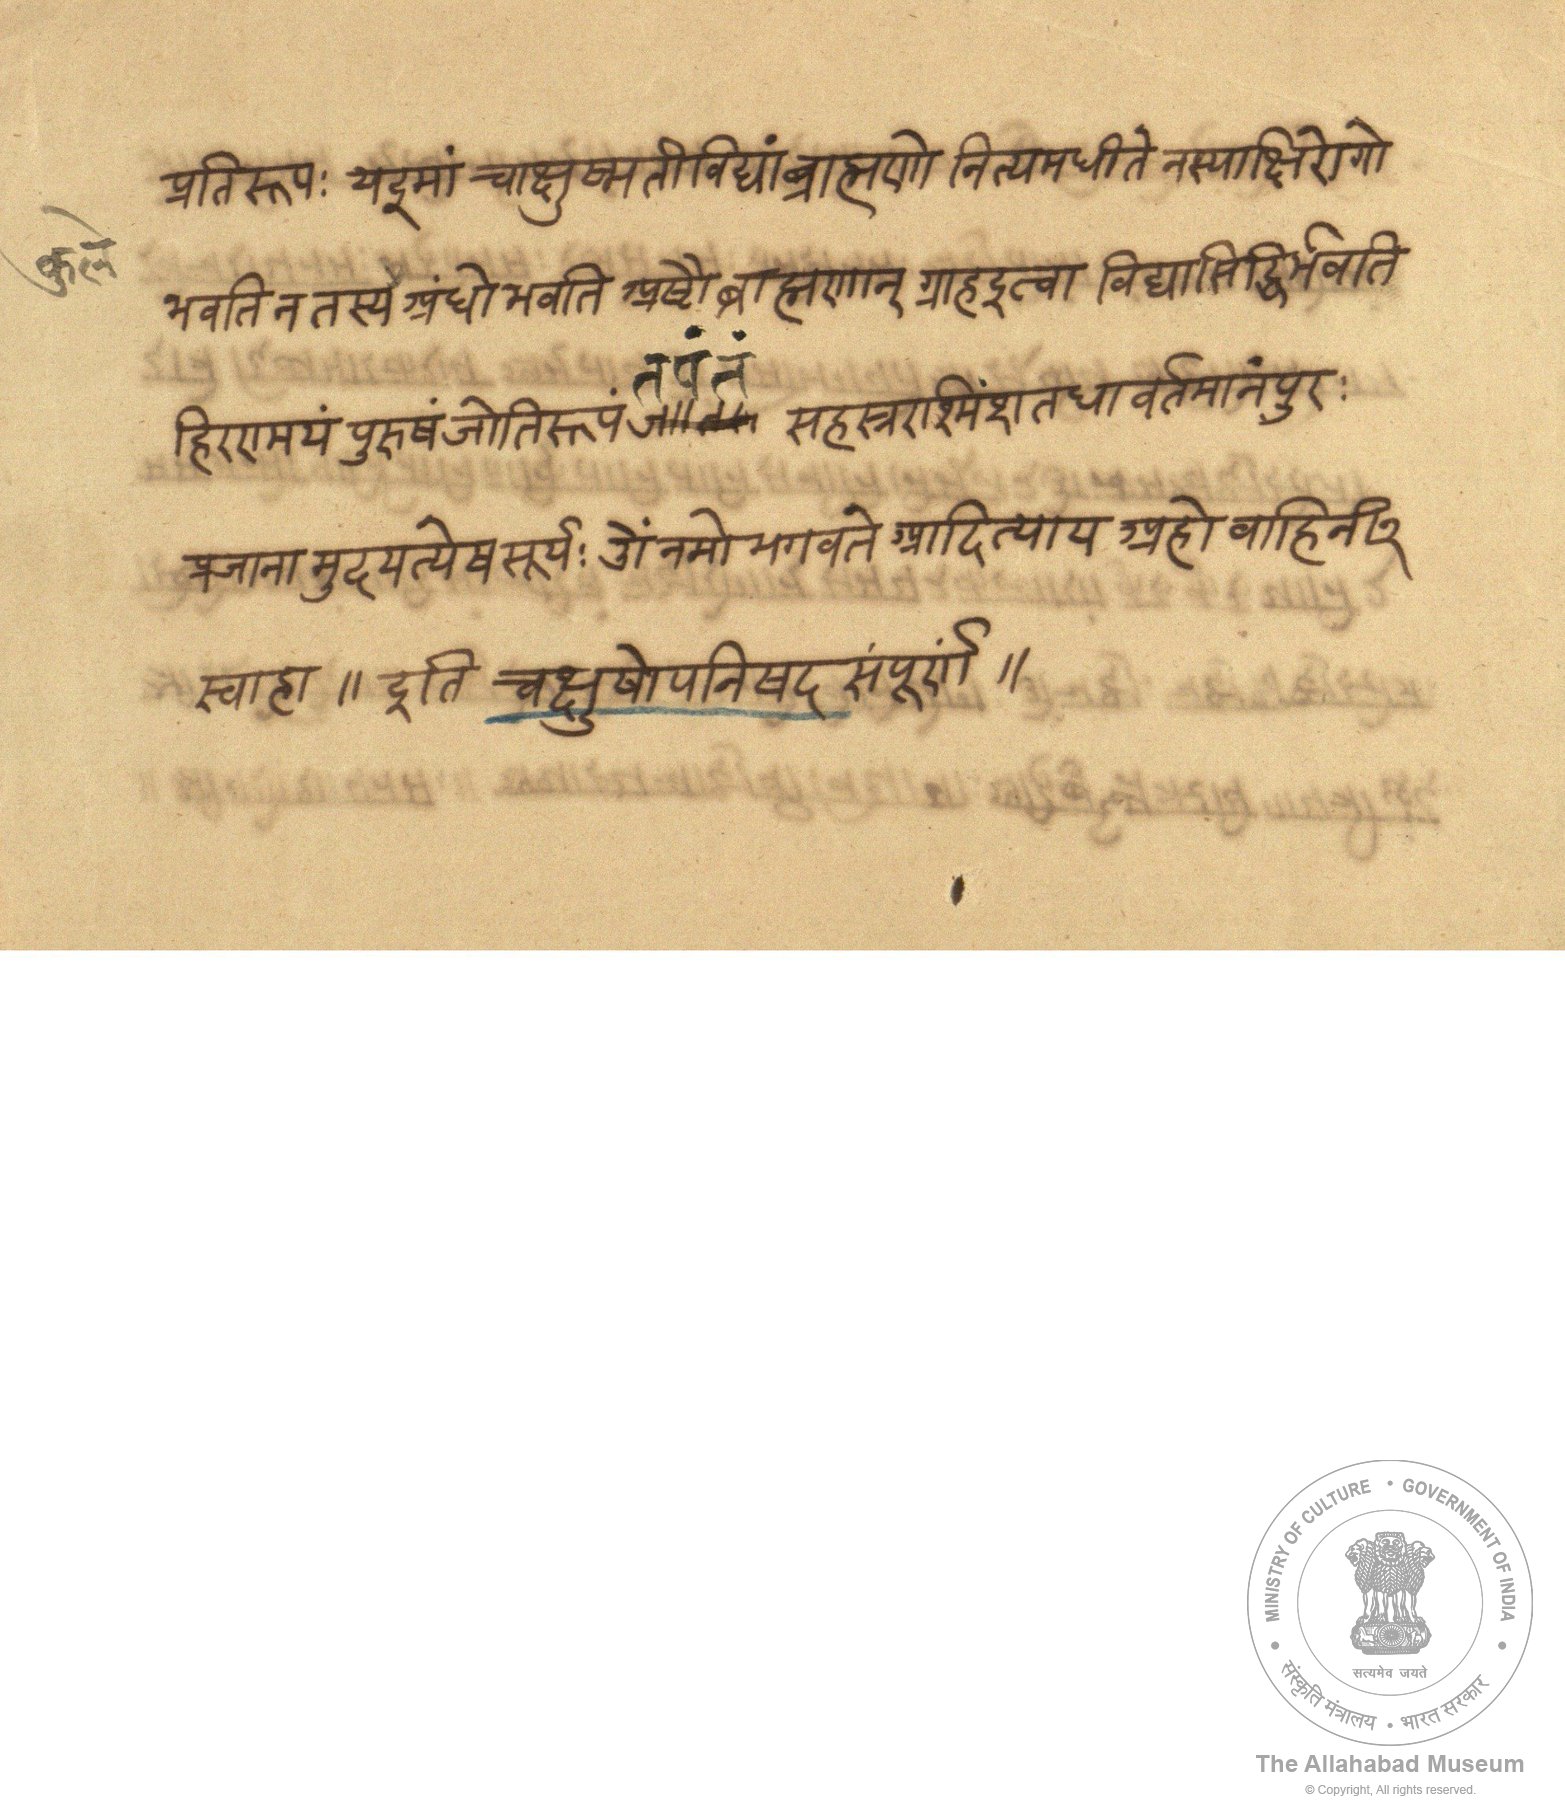 प्रतिरूपः यइमां चाक्षुष्मतीविद्यांब्राह्मणो नित्यमधीते नस्याक्षिरोगो
कुले
भवति न तस्य अंधो भवति अष्टौ ब्राह्मणान् ग्राहइत्वा विद्यासिद्धिर्भवति
तपंतं
हिरण्मयं पुरुषं जोतिरूपं सहस्त्ररश्मिंशतधा वर्तमानंपुरः
प्रजानामुदयत्येष सूर्यः ॐ नमो भगवते आदित्याय अहो वाहिनी२
स्वाहा ॥ इति चक्षुषोपनिषद संपूर्णं ॥
MINISTRY OF CULTURE • GOVERNMENT OF INDIA
सत्यमेव जयते
संस्कृति मंत्रालय • भारत सरकार
The Allahabad Museum
© Copyright, All rights reserved.